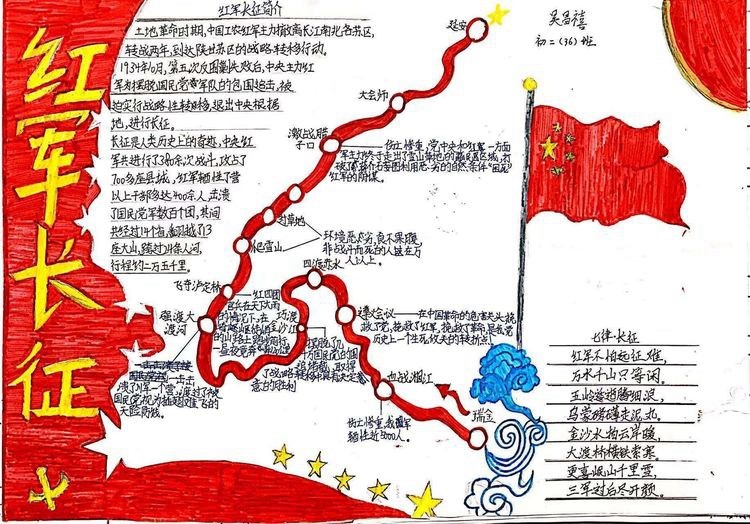 红军长征
红军长征简介
土地革命时期，中国工农红军主力撤离长江南北各苏区，
转战两年，到达陕甘苏区的战略转移行动。
1934年10月，第五次反围剿失败后，中央主力红
军为摆脱国民党军队的包围追击，被
迫实行战略性转移，退出中央根据
地，进行长征。
长征是人类历史上的奇迹，中央红
军共进行了380余次战斗，攻占了
700多座县城，红军牺牲了营
以上干部多达400余人，击溃
了国民党军数百个团，其间
共经过14个省，翻越了13
座大山，
行程约二万五千里。
吴昌禧
初二（36）班
延安
大会师
激战腊
子口
伤亡惨重，党中央和红军一方面
过草地
环境恶劣，食不果腹，
非战斗而死的人甚在万
人以上。
爬雪山
飞夺泸定桥
强渡大
渡河
四渡赤水
巧渡
金沙江
遵义会议
在中国革命的危急关头，挽
救了党，挽救了红军，挽救了革命，是我党
历史上一个生死攸关的转折点！
血战湘江
伤亡惨重，我红军
牺牲近5000人。
瑞金
七律·长征
红军不怕远征难，
万水千山只等闲。
五岭逶迤腾细浪，
乌蒙磅礴走泥丸。
金沙水拍云岸暖，
大渡桥横铁索寒。
更喜岷山千里雪，
三军过后尽开颜。